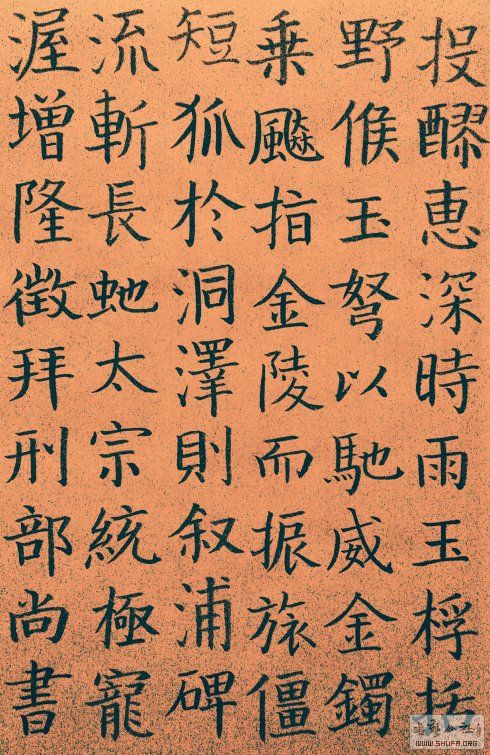 投醪惠深時雨玉桴
野候玉弩以馳威金鐲
乗飈指金陵而振旅僵
短狐於洞澤則叙浦碑
流斬長虵太宗統極寵
渥增隆徵拜刑部尚書
WWW.SHUFA.ORG